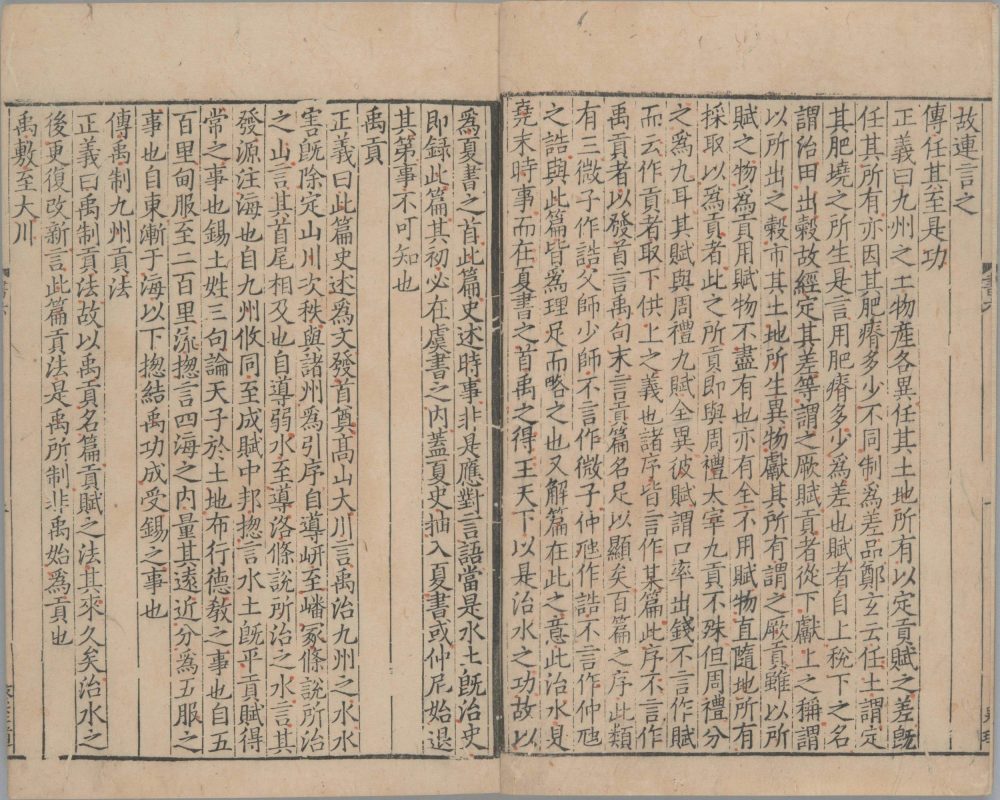 故連言之
傳任其至是功
正義曰九州之土物產各異任其土地所有以定貢賦之差旣
任其所有亦因其肥瘠多少不同制爲差品鄭玄云任土謂定
其肥墝之所生是言用肥瘠多少爲差也賦者自上稅下之名
謂治田出穀故經定其差等謂之厥賦貢者從下獻上之稱謂
以所出之穀市其土地所生異物獻其所有謂之厥貢雖以所
賦之物爲貢用賦物不盡有也亦有全不用賦物直隨地所有
採取以爲貢者此之所貢即與周禮太宰九貢不殊但周禮分
之爲九耳其賦與周禮九賦全異彼賦謂口率出錢不言作賦
而云作貢者取下供上之義也諸序皆言作某篇此序不言作
禹貢者以發首言禹句末言貢篇名足以顯矣百篇之序此類
有三微子作誥父師少師不言作微子仲虺作誥不言作仲虺
之誥與此篇皆爲理足而略之也又解篇在此之意此治水是
堯末時事而在夏書之首禹之得王天下以是治水之功故以
爲夏書之首此篇史述時事非是應對言語當是水土旣治史
即録此篇其初必在虞書之內蓋夏史抽入夏書或仲尼始退
其第事不可知也
禹貢
正義曰此篇史述爲文發首奠髙山大川言禹治九州之水水
害旣除定山川次秩與諸州爲引序自導岍至嶓冢條說所治
之山言其首尾相及也自導弱水至導洛條說所治之水言其
發源注海也自九州攸同至成賦中邦揔言水土旣平貢賦得
常之事也錫土姓三句論天子於土地布行德教之事也自五
百里甸服至二百里流揔言四海之內量其遠近分爲五服之
事也自東漸于海以下揔結禹功成受錫之事也
傳禹制九州貢法
正義曰禹制貢法故以禹貢名篇貢賦之法其來久矣治水之
後更復改新言此篇貢法是禹所制非禹始爲貢也
禹敷至大川